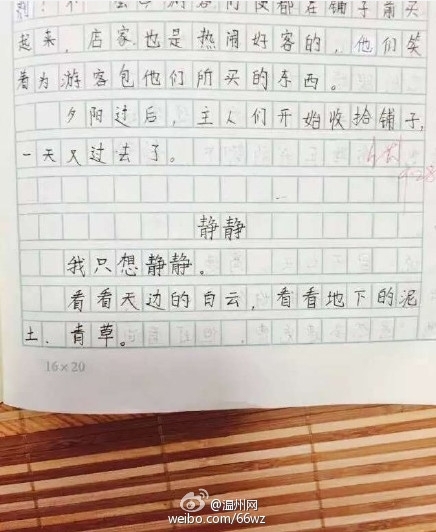 都在铺子前买
起来，店家也是热闹好客的，他们笑
着为游客包他们所买的东西。
夕阳过后，主人们开始收拾铺子，
一天又过去了。
静静
我只想静静。
看看天边的白云，看看地下的泥
土、青草。
16×20
温州网
weibo.com/66wz